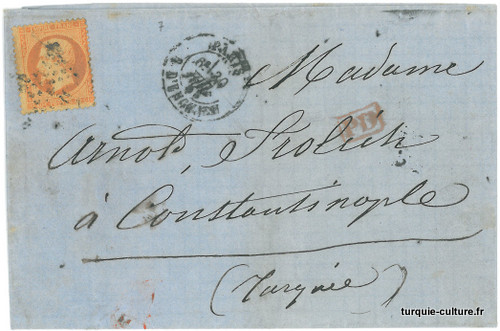 EMPIRE FRANC
PARIS
Madame
PD
Arnold, Frolich
à Constantinople
(Turquie)
turquie-culture.fr